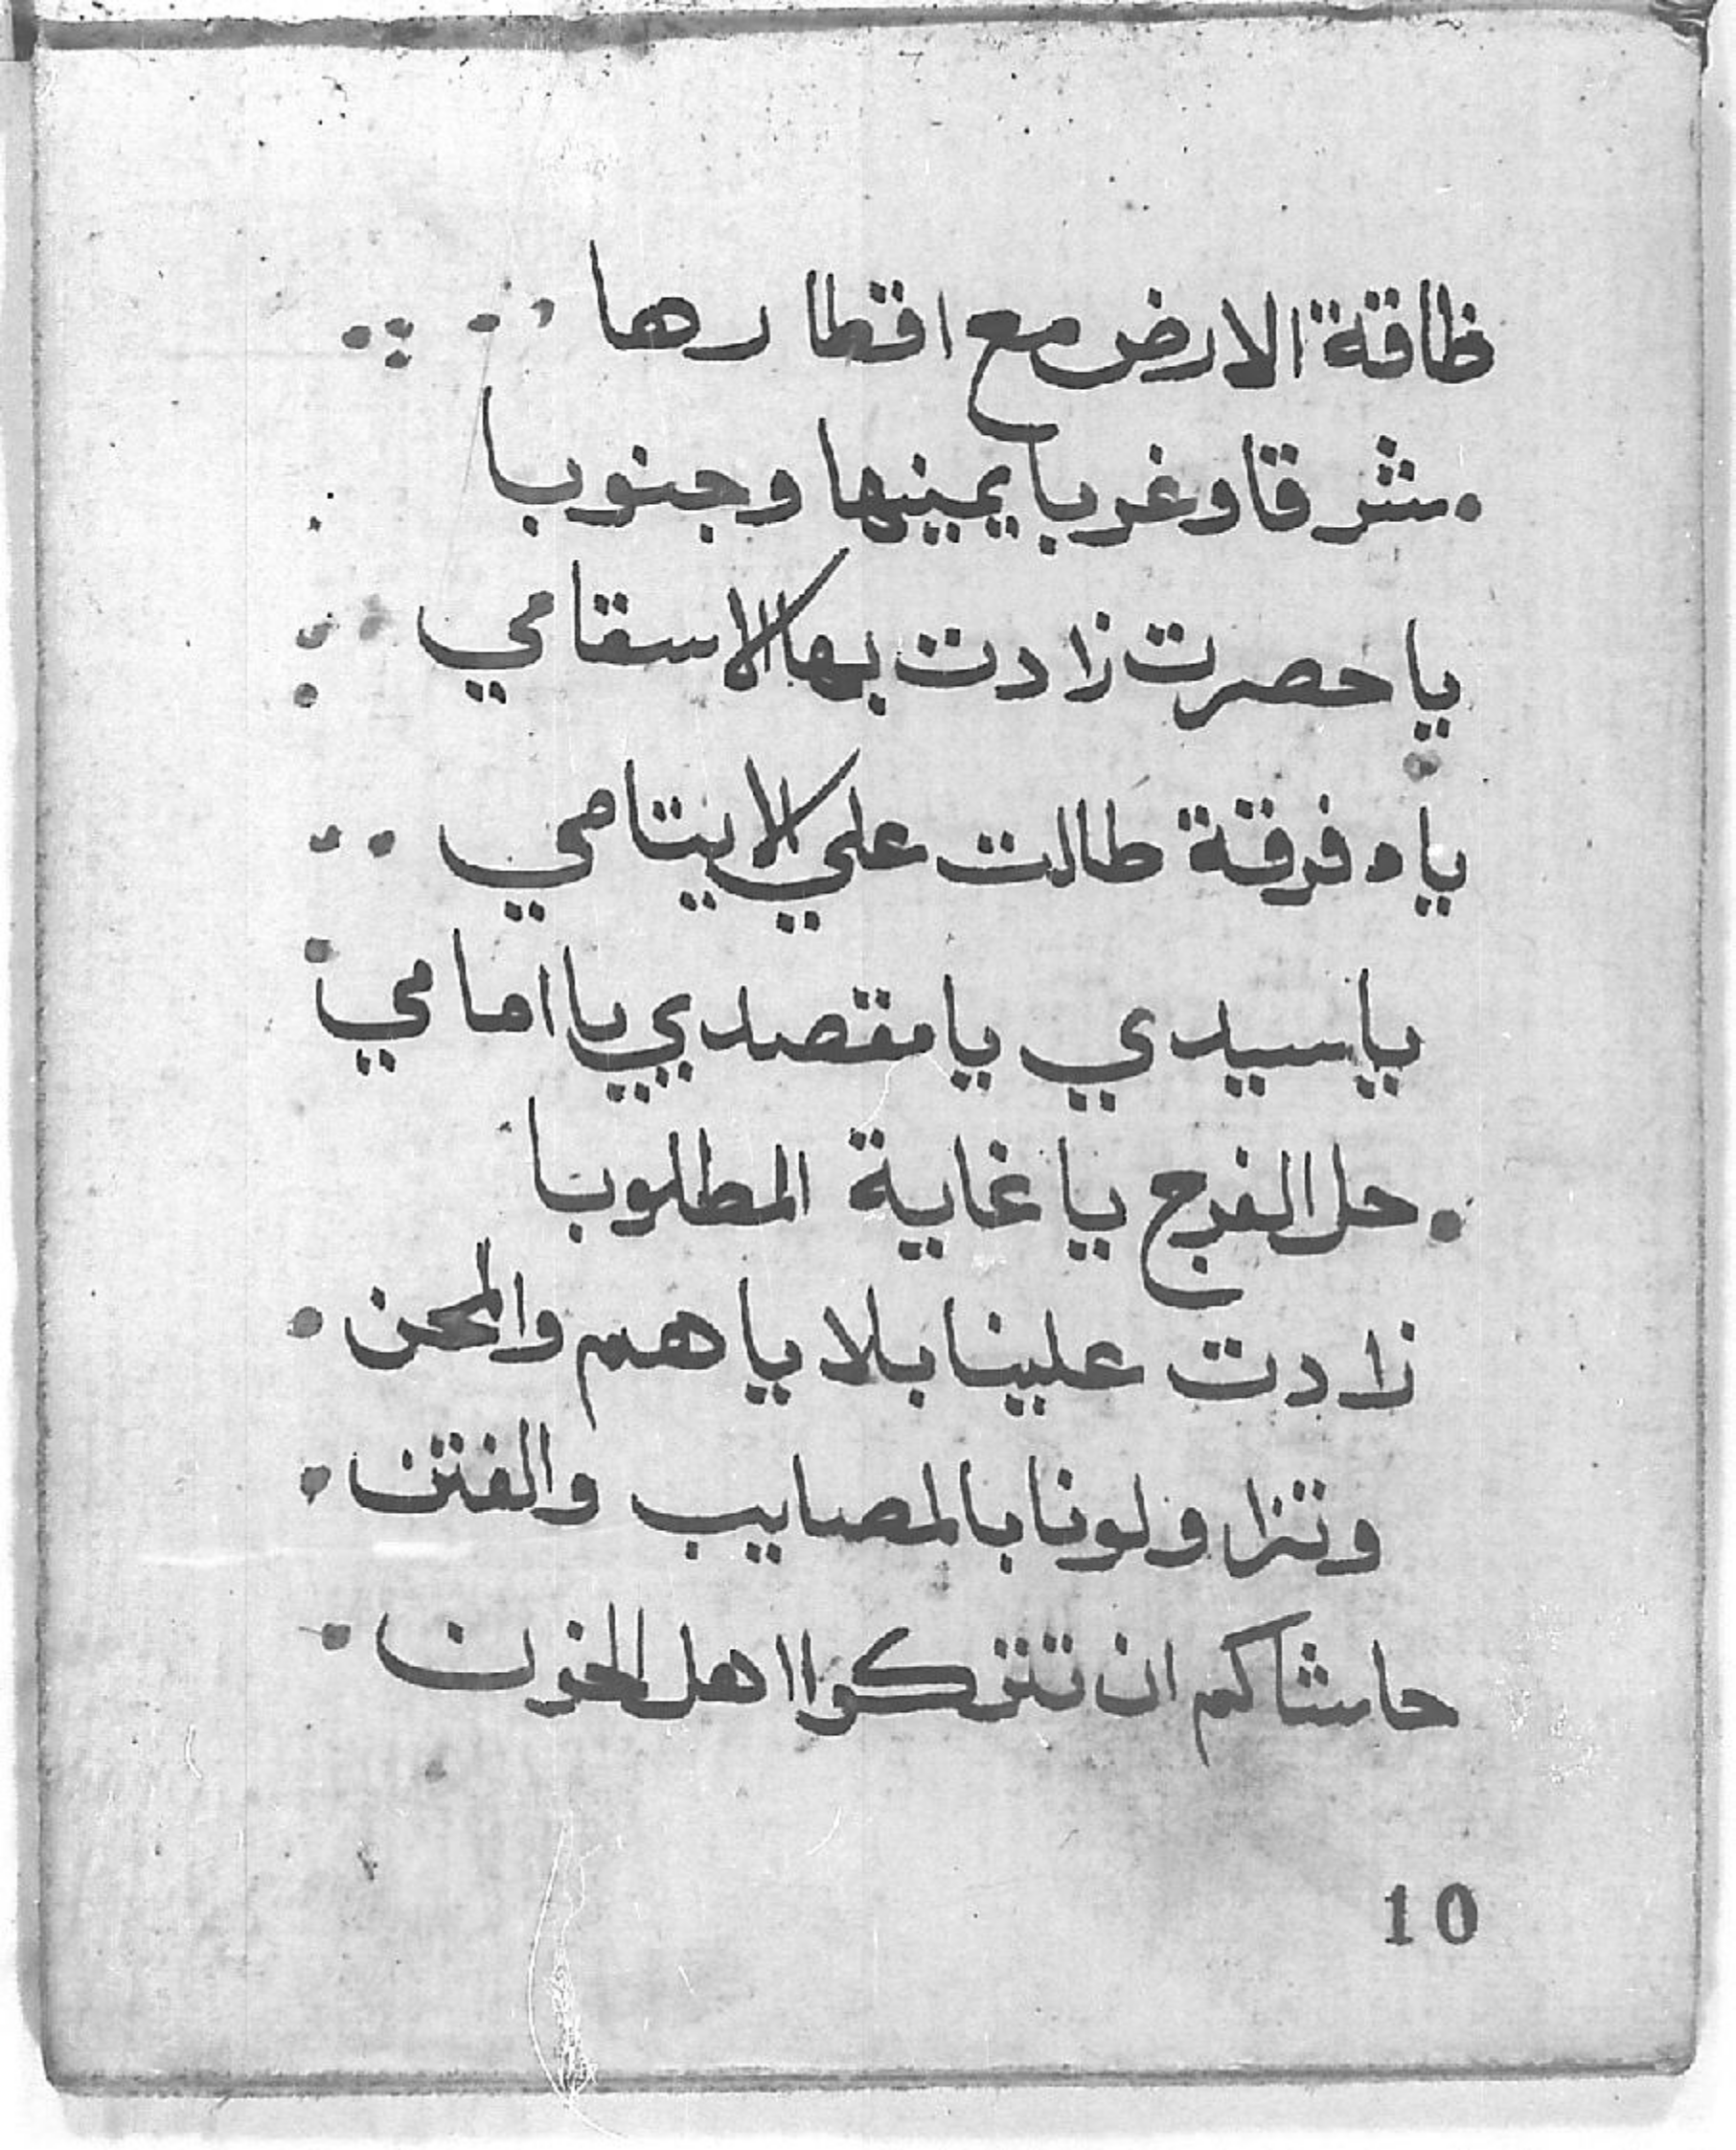 ظاقة الارض مع اقطارها
شرقا وغربا يمينها وجنوبا
يا حصرت زادت بها الاسقامي
ياه فرقة طالت علي الايتامي
يا سيدي يا مقصدي يا امامي
حل الفرج يا غاية المطلوبا
زادت علينا بلايا هم والمحن
وتزاولونا بالمصايب والفتن
حاشاكم ان تتركوا اهل الحزن
10